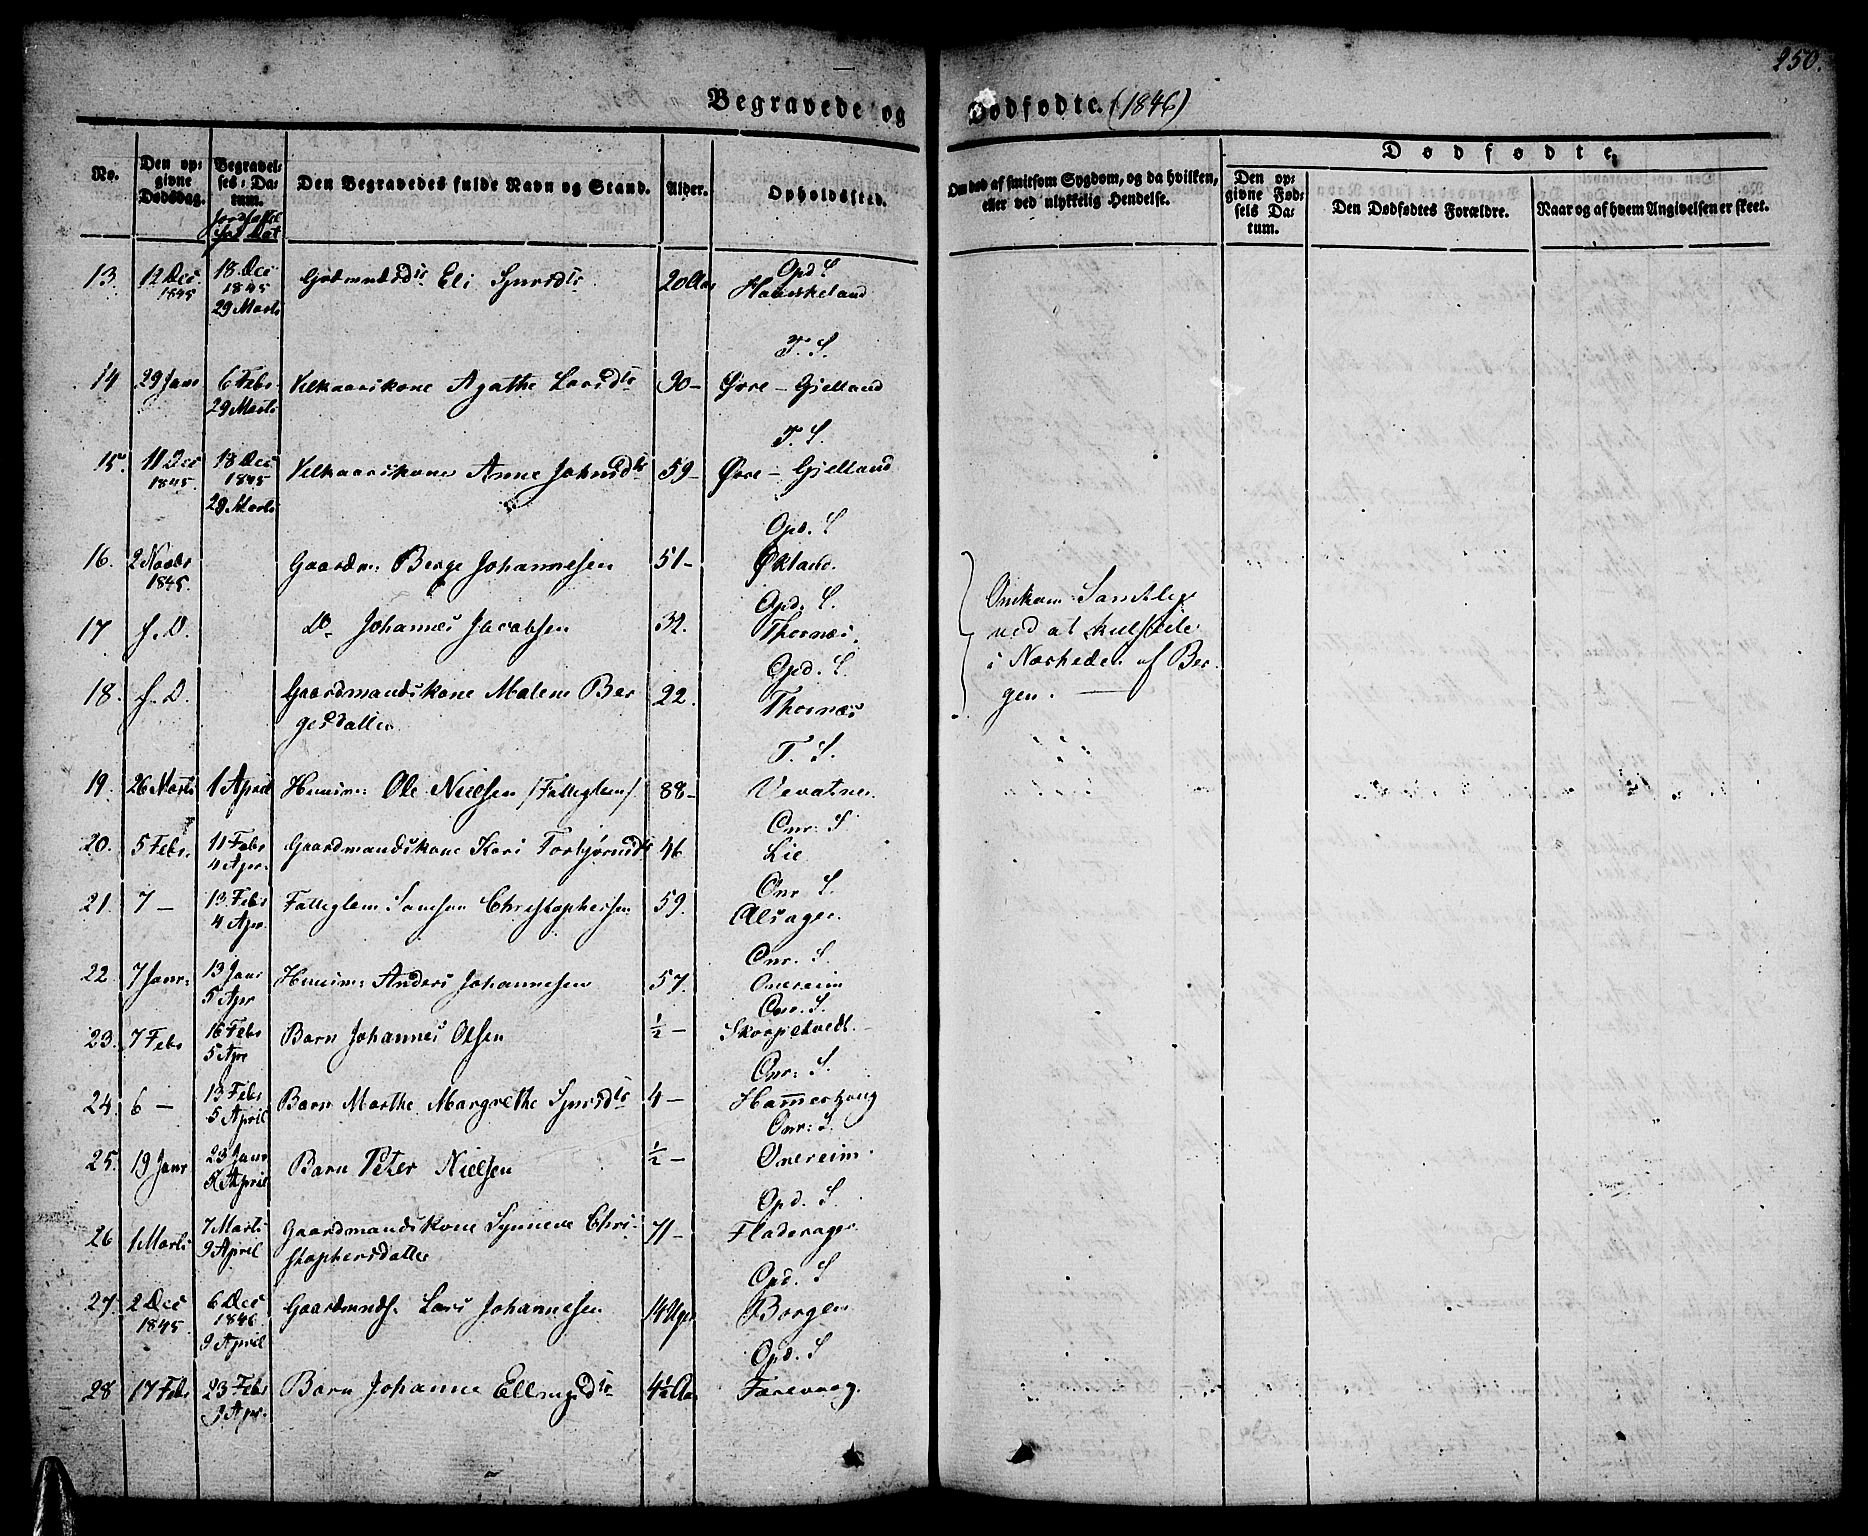 250.
Begravede og Dødfødte. (1846)
No.
Den op-
givne
Dødsdag.
Begravel-
ses-Da-
tum.
Den Begravedes fulde Navn og Stand.
Alder.
Opholdssted.
Om død af smitsom Sygdom, og da hvilken,
eller ved ulykkelig Hendelse.
Dødfødte.
Den op-
givne Fød-
sels Da-
tum.
Den Dødfødtes Forældre.
Naar og af hvem Angivelsen er skeet.
13. 12 Dec 1845 18 Dec 1845 29 Marts Eli Sjursdtr 20 Aar Opd. S. Haukeland
14 29 Janr 6 Febr 29 Marts Velkaarskone Agathe Larsdtr 30 – T. S. Øvre – Gjelland
15. 11 Dec 1845. 18 Dec 1845 29 Marts Velkaarskone Anne Johnsdtr 59 – T. S. Øvre – Gjelland
16. 2 Novbr 1845. Gaardm: Berge Johannesen 51 – Opd. S. Økland.
17 s. D. Do Johannes Jacobsen 32. Opd. S. Thornæs.
18. s. D. Gaardmandskone Malene Ber-
gesdatter 22. Opd. S. Thornæs
Omkom Samtlige
ved at kulseile
i Nærheden af Ber-
gen.
19. 26 Marts 1 April Huusm: Ole Nielsen /Fattiglem/ 88 – T. S. Vevatne.
20. 5 Febr. 11 Febr 4 Apr. Gaardmandskone Kari Torbjørnsdtr 46 Onr: S. Lie
21. 7 – 13 Febr 4 Apr. Fattiglem Samson Christophersen 59. Onr. S. Alsager.
22. 7 Janr. 13 Janr 5 Apr Huusm: Anders Johannesen 57. Onr. S. Onereim
23. 7 Febr 16 Febr 5 Apr Barn Johannes Olsen ½ – Onr. S. Skorpetvedt.
24. 6 – 13 Febr 5 April Barn Marthe Margrethe Sjursdtr 4 – Onr: S. Hammerhoug
25. 19 Janr 23 Janr April Barn Peter Nielsen ½ – Onr: S. Onereim.
26 1 Marts 7 Marts 9 April Gaardmandskone Synneve Chri-
stophersdatter 71 – Opd. S. Fladerager
27. 2 Dec 1845. 6 Dec 1846. 9 April Gaardmands. Lars Johannesen 14 Uger Opd. S. Borgen
28 17 Febr 23 Febr 9 Apr. Barn Johanne Ellingsdtr 4½ Aar Opd. S. Færevaag.